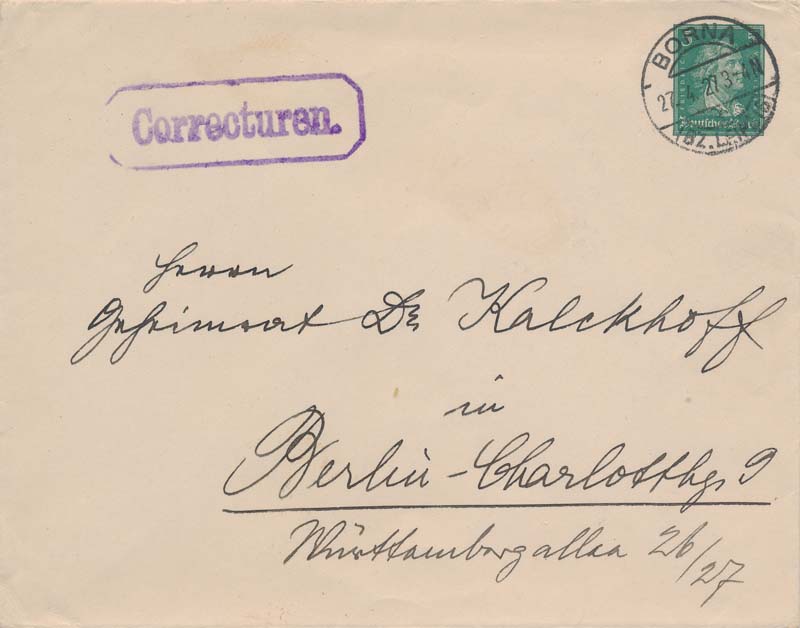 Correcturen.
BORNA
27.4.27.3-4N
(BZ. LPZ.)
Deutsches Reich
Herrn
Geheimrat Dr. Kalckhoff
in
Berlin-Charlotthg. 9
Württembergallee 26/27